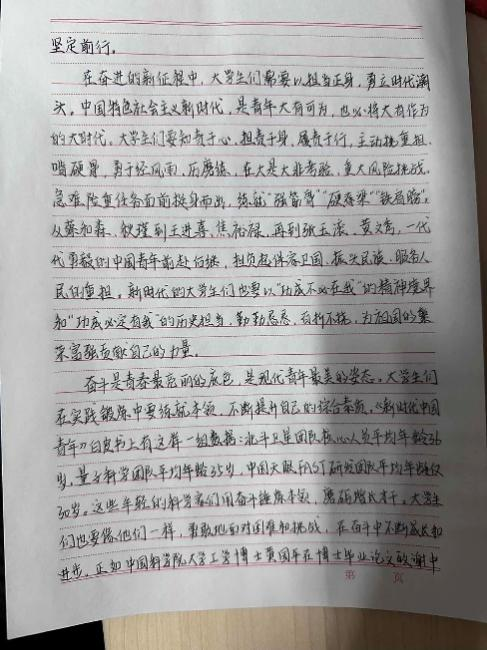 坚定前行。
在奋进的新征程中，大学生们需要以担当正身，勇立时代潮
头。中国特色社会主义新时代，是青年大有可为，也必将大有作为
的大时代。大学生们要知责于心、担责于身、履责于行，主动挑重担、
啃硬骨，勇于经风雨、历磨练，在大是大非考验、重大风险挑战、
急难险重任务面前挺身而出，练就“强筋骨”“硬脊梁”“铁肩膀”。
从蔡和森、钦瑾到王进喜、焦裕禄，再到张玉滚、黄文秀，一代
代勇毅的中国青年前赴后继，担负起保家卫国、振兴民族、服务人
民的重担。新时代的大学生们也要以“功成不必在我”的精神境界
和“功成必定有我”的历史担当，勤勤恳恳、百折不挠，为祖国的繁
荣富强贡献自己的力量。
奋斗是青春最亮丽的底色，是现代青年最美的姿态。大学生们
在实践锻炼中要练就本领，不断提升自己的综合素质。《新时代中国
青年》白皮书上有这样一组数据：北斗卫星团队核心人员平均年龄36
岁，量子科学团队平均年龄35岁，中国天眼FAST研发团队平均年龄仅
30岁。这些年轻的科学家们用奋斗锤炼本领，磨砺增长才干。大学生
们也要像他们一样，勇敢地面对困难和挑战，在奋斗中不断成长和
进步。正如中国科学院大学工学博士黄国平在博士毕业论文致谢中
第 页